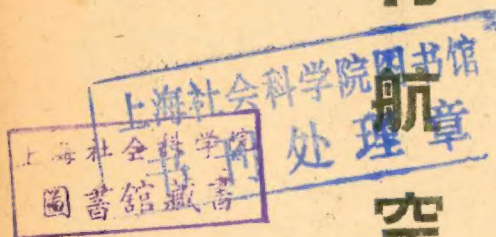 上海社会科学院图书馆
处理章
上海社会科学院
圖書館藏書
航
空